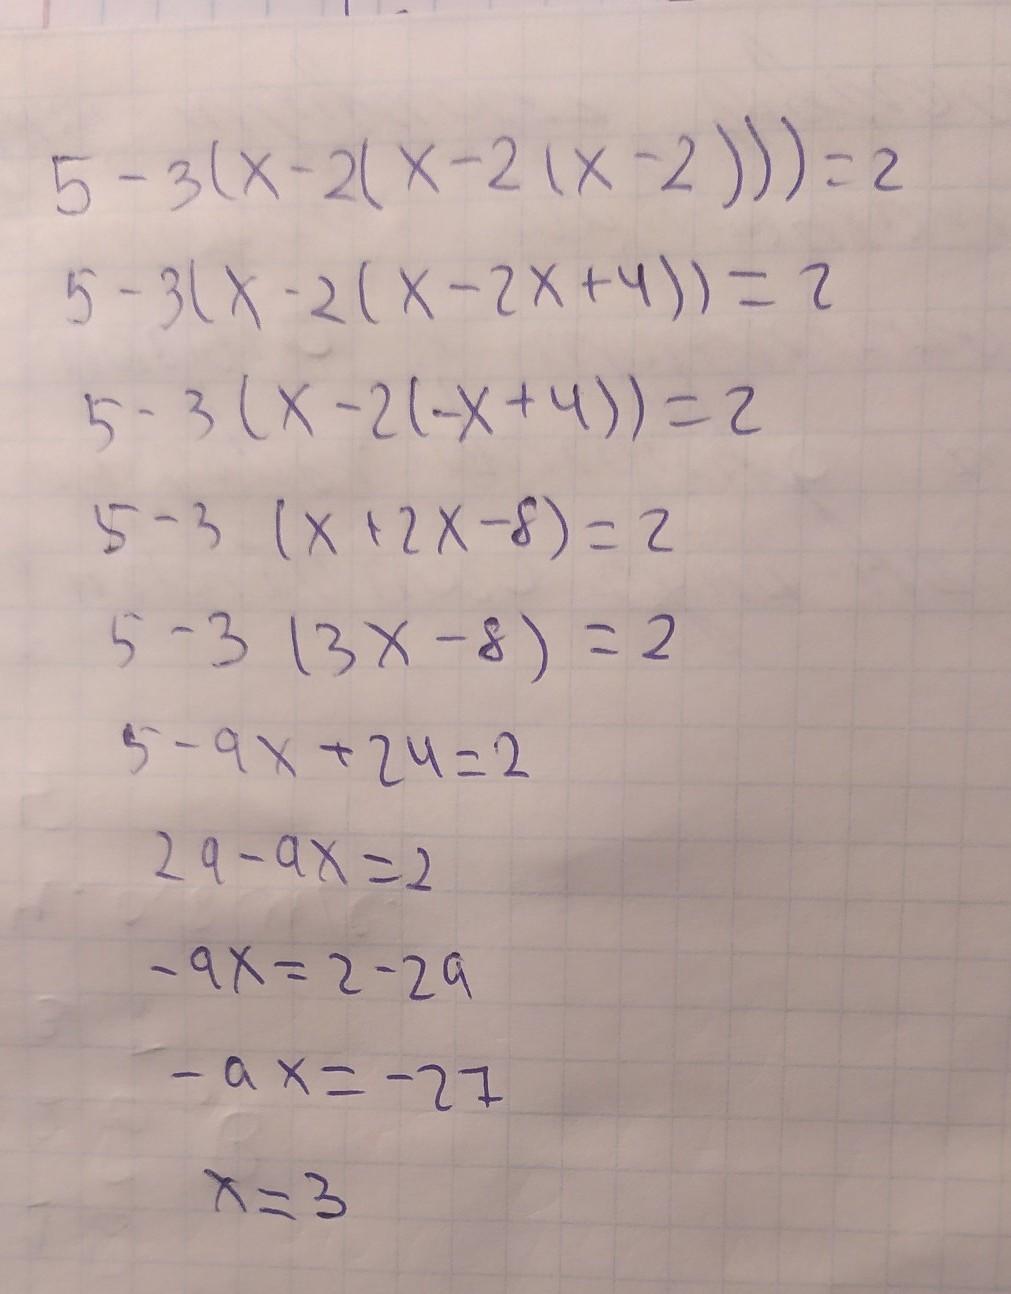 5-3(x-2(x-2(x-2)))=2
5-3(x-2(x-2x+4))=2
5-3(x-2(-x+4))=2
5-3(x+2x-8)=2
5-3(3x-8)=2
5-9x+24=2
29-9x=2
-9x=2-29
-9x=-27
x=3